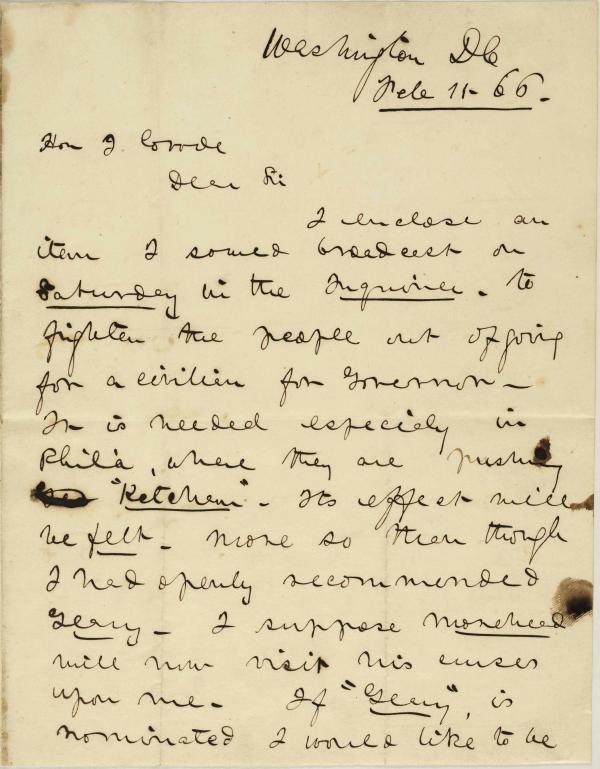 Washington DC
Feb 11- 66-
Hon J. Covode
Dear Sir
I enclose an
item I sowed broadcast on
Saturday in the Inquirer. to
frighten the people out of going
for a civilian for Governor-
It is needed especialy in
Phila, where they are pushing
"Ketcham". Its effect will
be felt. more so than though
I had openly recommended
Geary. I suppose Morehead
will now visit his curses
upon me. If "Geary", is
nominated I would like to be